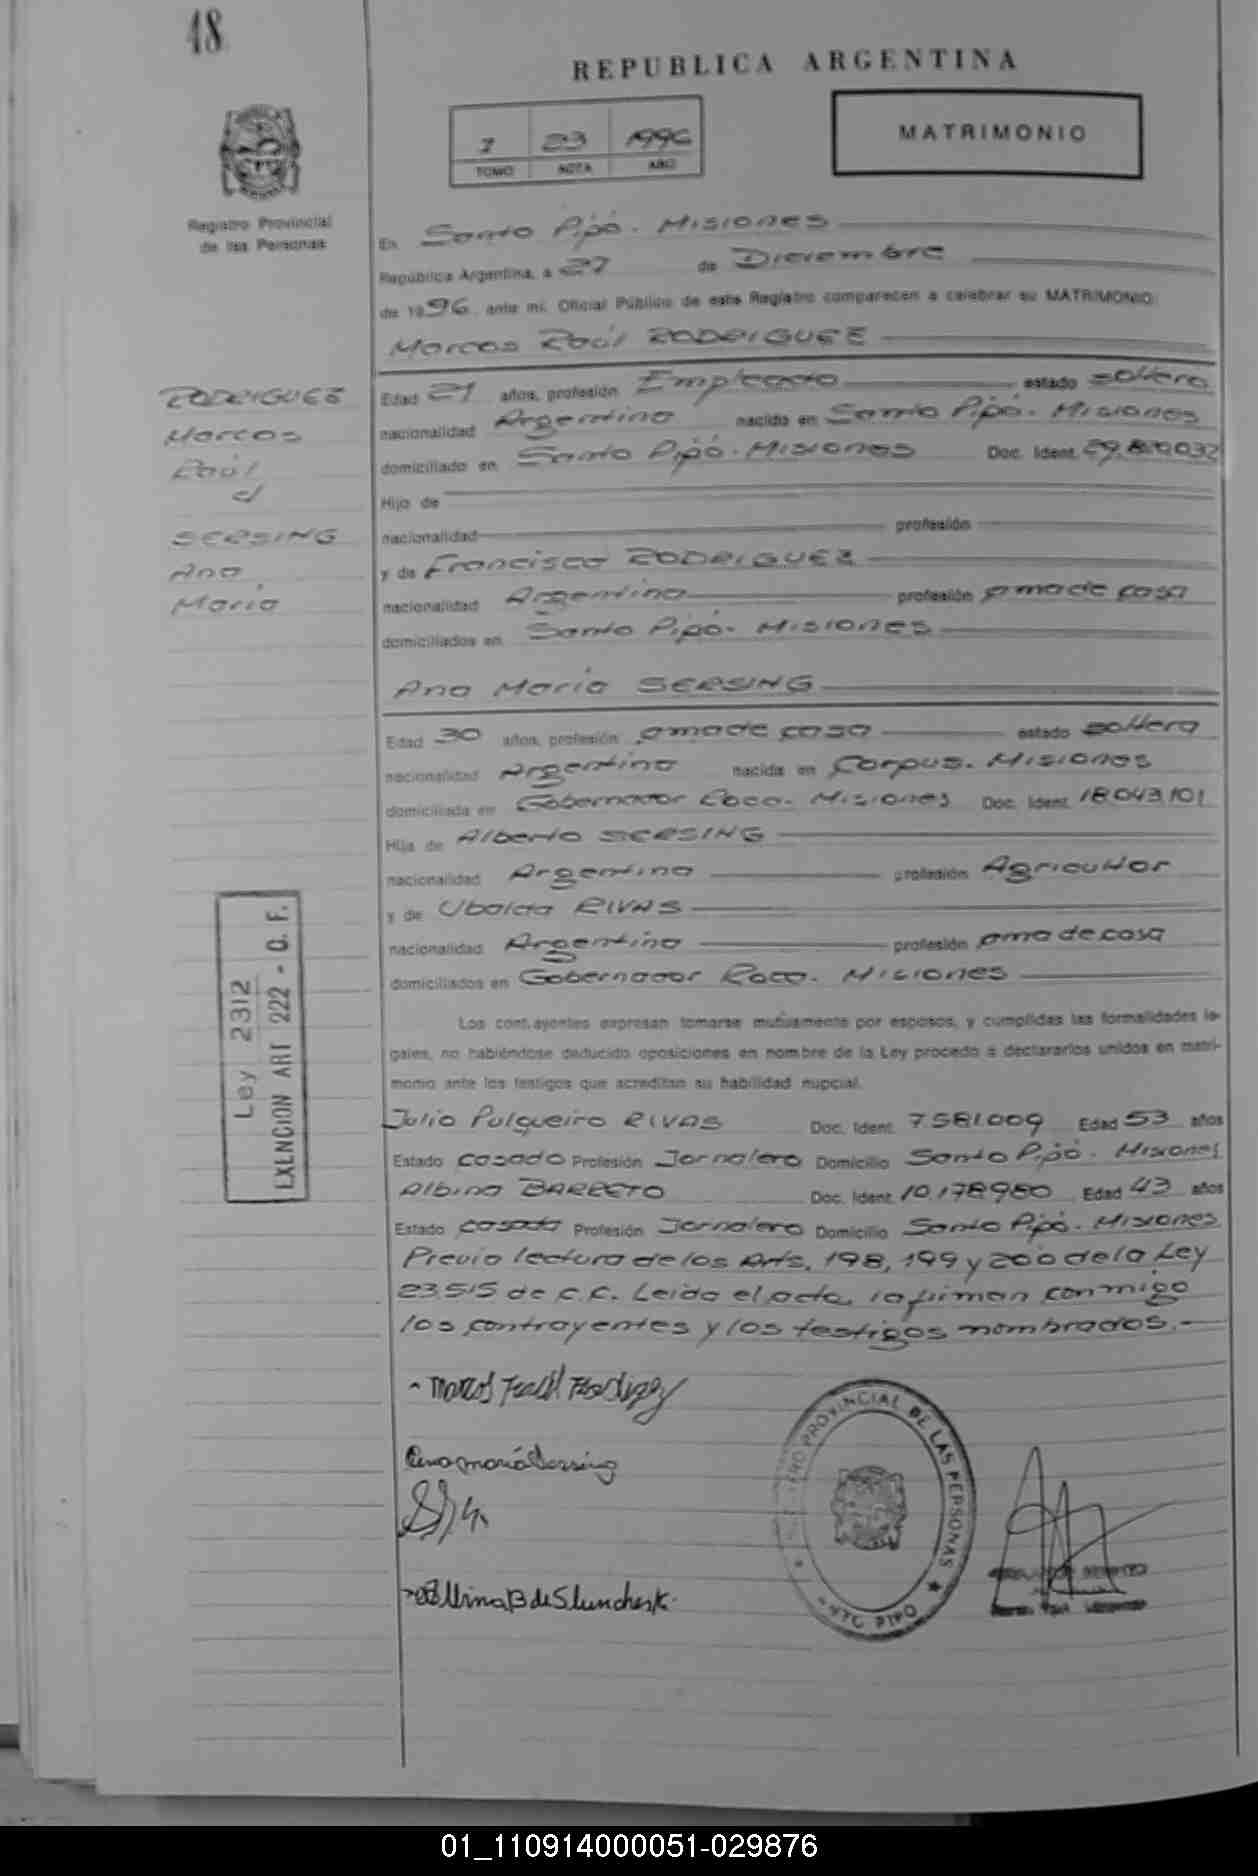 48
REPUBLICA ARGENTINA
1 23 1996
TOMO NOTA AÑO
MATRIMONIO
Registro Provincial
de las Personas
En Santo Pipó. Misiones
República Argentina, a 27 de Diciembre
de 1996 ante mí, Oficial Público de este Registro comparecen a celebrar su MATRIMONIO:
Marcos Raúl RODRIGUEZ
RODRIGUEZ
Marcos
Raúl
c/
SERSING
Ana
María
Edad 21 años, profesión Empleado estado soltero
nacionalidad Argentino nacido en Santo Pipó. Misiones
domiciliado en Santo Pipó. Misiones Doc. Ident.
Hijo de
nacionalidad profesión
y de Francisca RODRIGUEZ
nacionalidad Argentina profesión ama de casa
domiciliados en Santo Pipó. Misiones
Ana María SERSING
Edad 30 años, profesión ama de casa estado soltera
nacionalidad Argentina nacida en Corpus. Misiones
domiciliada en Gobernador Roca. Misiones Doc. Ident. 18.043.101
Hija de Alberto SERSING
nacionalidad Argentino profesión Agricultor
y de Ubalda RIVAS
nacionalidad Argentina profesión ama de casa
domiciliados en Gobernador Roca. Misiones
Ley 2312
EXENCION ART 222 - C. F.
Los contrayentes expresan tomarse mutuamente por esposos, y cumplidas las formalidades le-
gales, no habiéndose deducido oposiciones en nombre de la Ley procedo a declararlos unidos en matri-
monio ante los testigos que acreditan su habilidad nupcial.
Julio Pulqueiro RIVAS Doc. Ident. 7.581.009 Edad 53 años
Estado casado Profesión Jornalero Domicilio Santo Pipó. Misiones
Albino BARRETO Doc. Ident. 10.178.980 Edad 43 años
Estado casado Profesión Jornalero Domicilio Santo Pipó. Misiones
Previo lectura de los Arts. 198, 199 y 200 de la Ley
23.515 de C.C. Leída el acta, la firman conmigo
los contrayentes y los testigos nombrados.-
Marcos Raúl Rodriguez
Ana María Sersing
PROVINCIAL DE LAS PERSONAS
PIPO
01_110914000051-029876